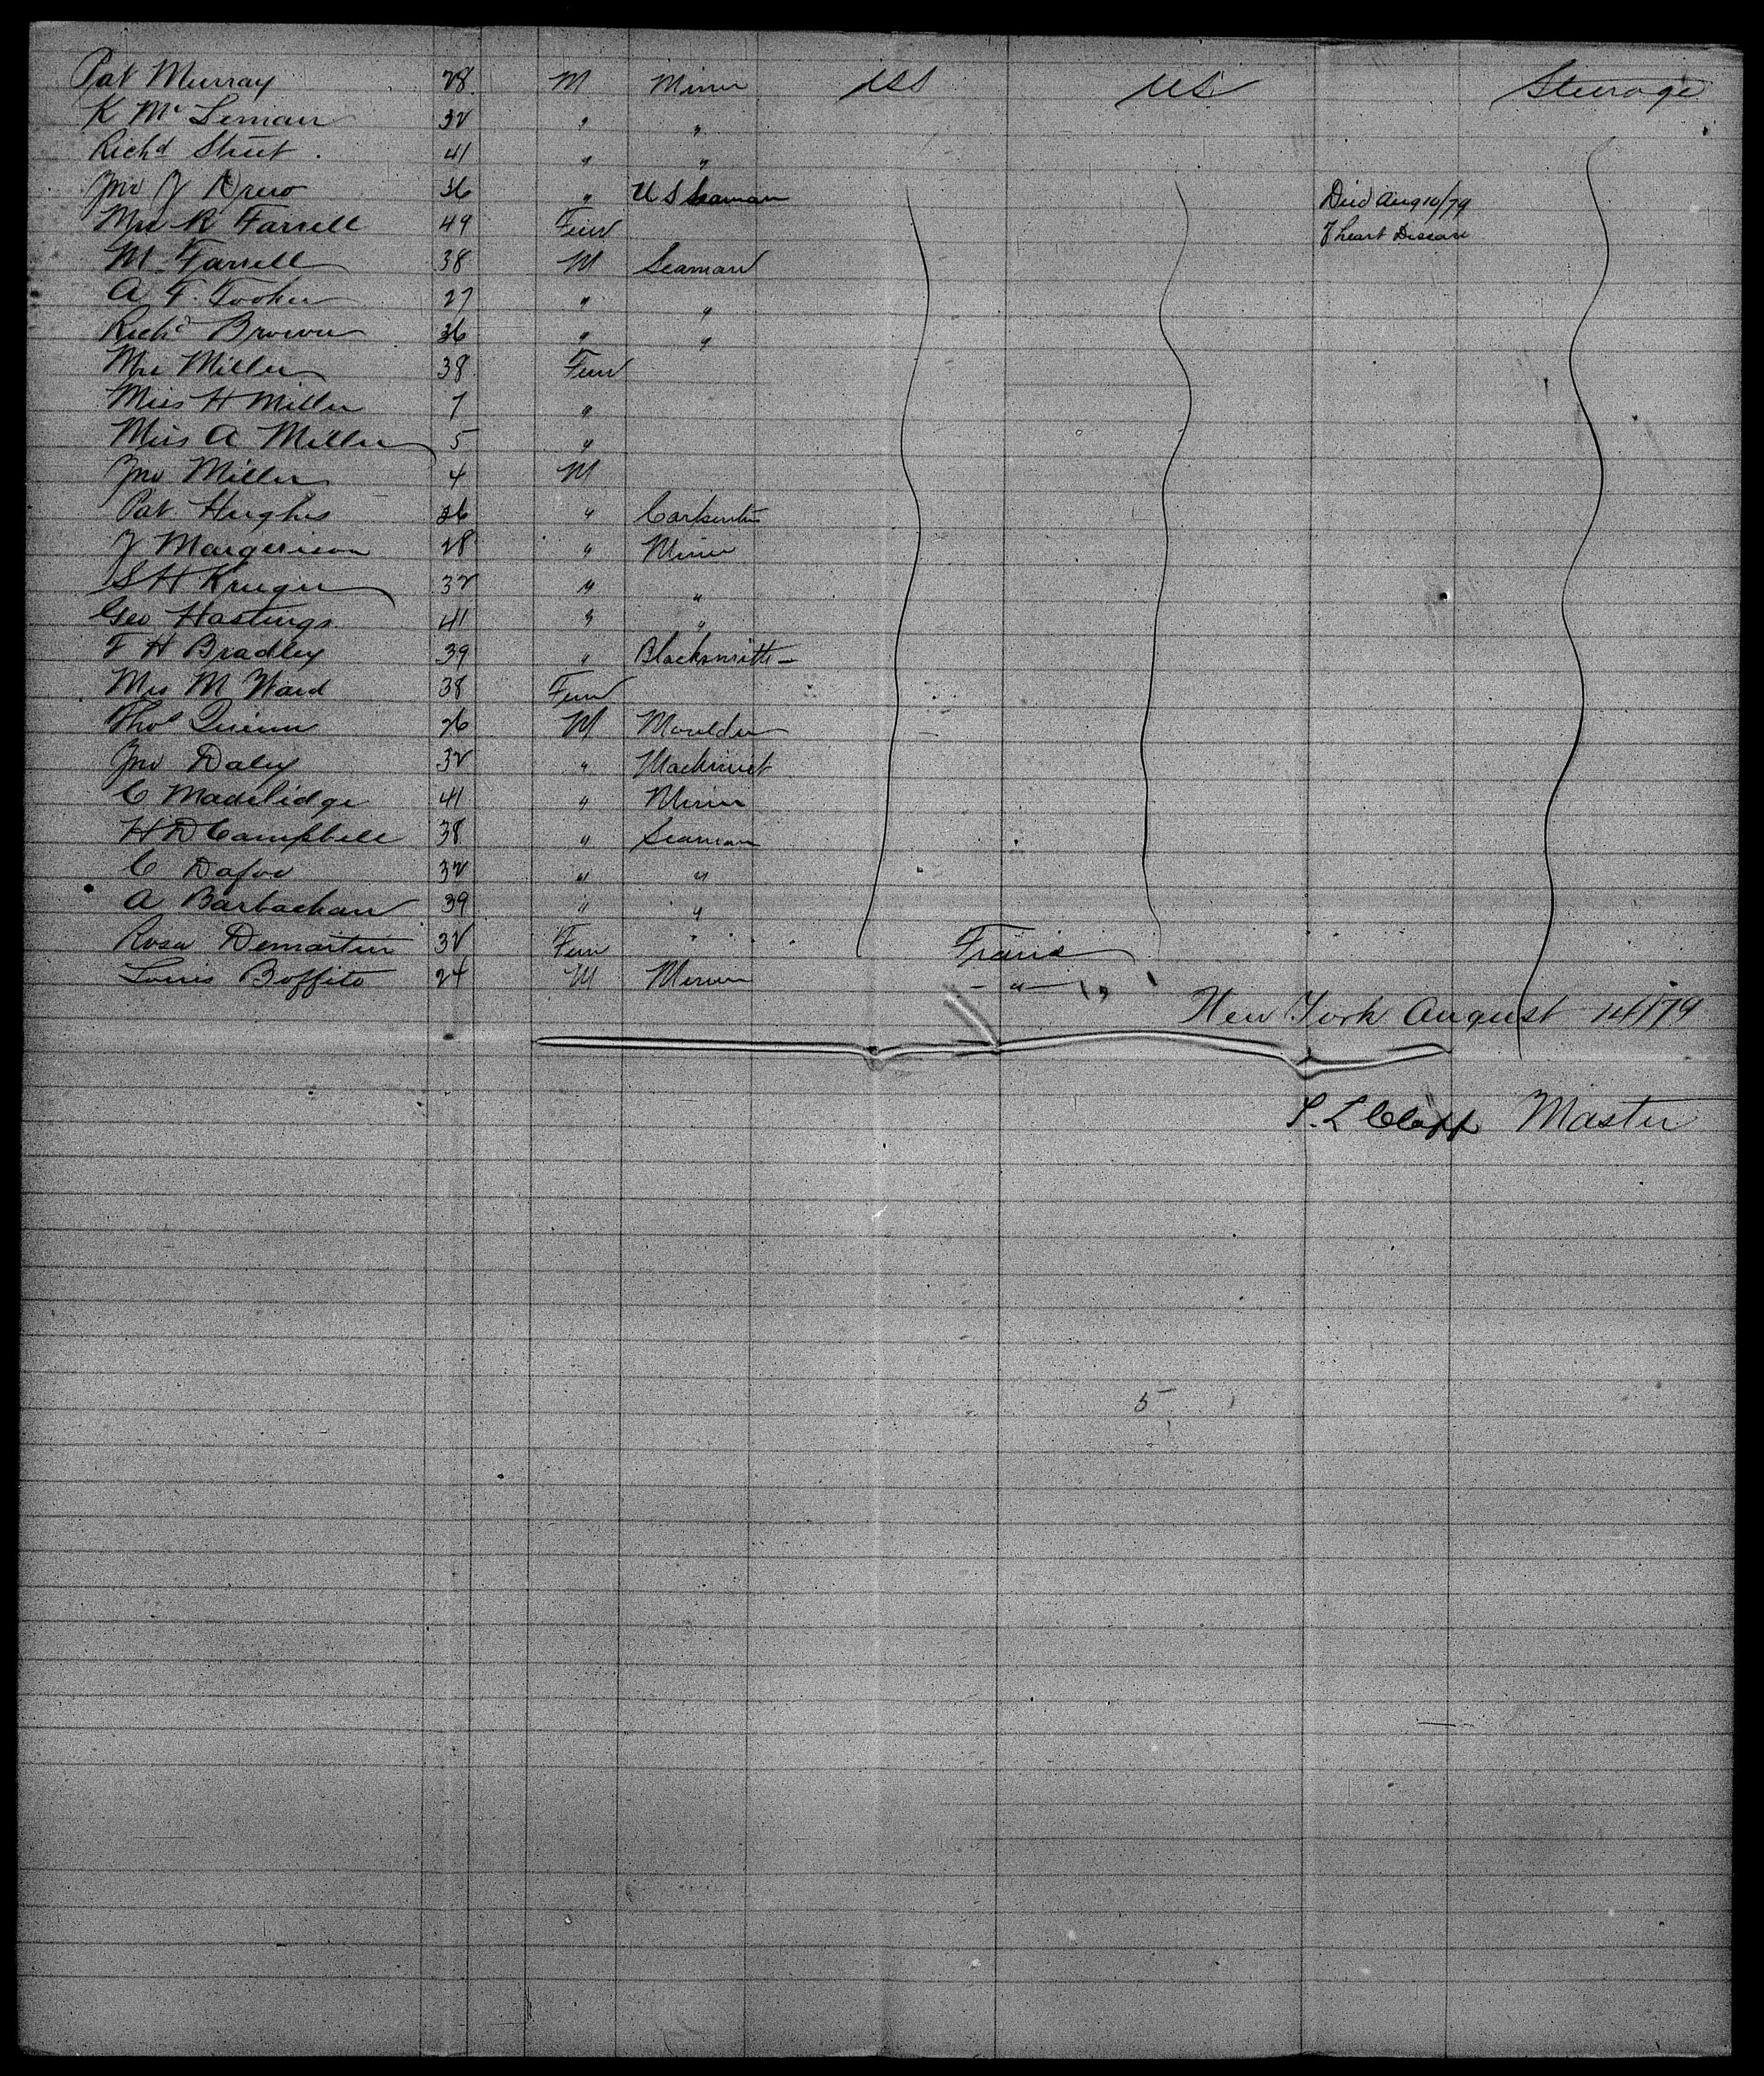 Pat Murray 28 M Miner US US Steerage
K Mc Leman 32 " "
Richd Street 41 " "
Jno J Drew 36 " U S Seaman Died Aug 10/79
Mrs R Farrell 49 Fem of heart Disease
M Farrell 38 M Seaman
A F. Tooker 27 " "
Richd Brown 36 " "
Mrs Miller 38 Fem
Miss H Miller 7 "
Miss A Miller 5 "
Jno Miller 4 M
Pat Hughes 36 " Carpenter
J Margerison 28 " Miner
S H Kruger 32 " "
Geo Hastings 41 " "
F H Bradley 39 " Blacksmith
Mrs M Ward 38 Fem
Thos Quinn 26 M Moulder
Jno Daley 32 " Machinist
C 41 " Miner
H D Campbell 38 " Seaman
C Dafoe 32 " "
A Barbachan 39 " "
Rosa Demartin 32 Fem " France
Louis Boffito 24 M Miner "
New York August 14/79
S. L Clapp Master
5